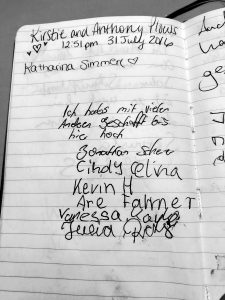 Kirstie and Anthony Plows
12:51pm 31 July 2016
Katharina Simmer
Ich habs mit vielen
Anderen geschafft bis
hier hoch
Jonathan
Cindy Celina
Kevin H
Are Falmer
Vanessa
Julia